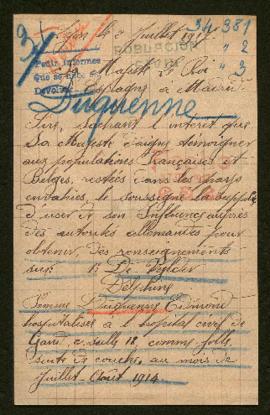 34.381
" 2
" 3
Lyon le 2 Juillet 1917
POBLACION
CIVIL
Pedir informes
Que se
Devolver
Sa Majesté le Roi
d'Espagne à Madrid
Duquenne
Sire, sachant l'intérêt que
Sa Majesté daigne témoigner
aux populations Françaises et
Belges, restées dans les pays
envahies le soussigné la supplie
d'user de son Influence auprès
des autorités allemandes pour
obtenir des renseignements
sur: 1)
Delphine
Femme Duquenne Edmond
hospitalisée à l'hôpital civil de
Gand, salle 18, comme folle
suite de couches au mois de
Juillet-Août 1914